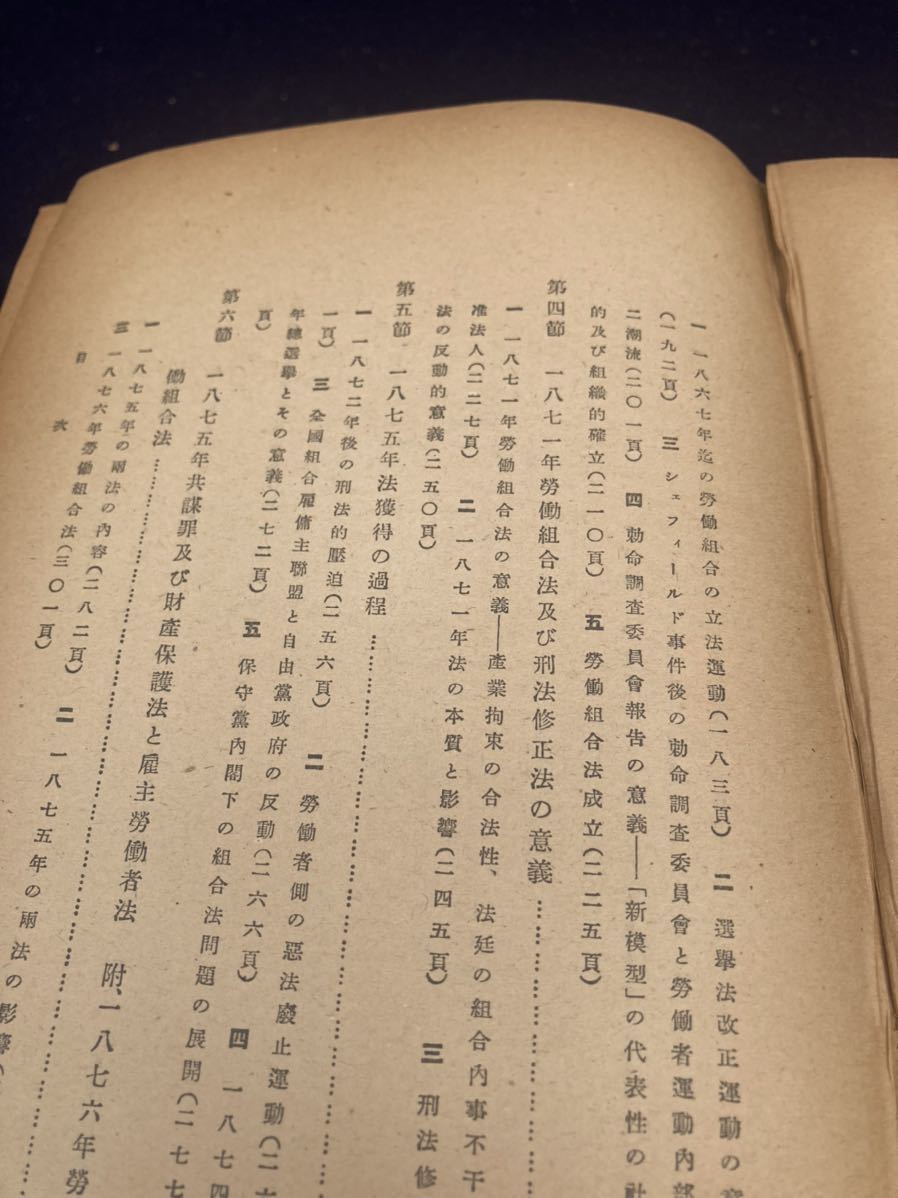 一 一八六七年迄の勞働組合の立法運動(一八三頁) 二 選擧法改正運動の意
(一九二頁) 三 シェフィールド事件後の勅命調査委員會と勞働者運動內部
二潮流(二〇一頁) 四 勅命調査委員會報告の意義――「新模型」の代表性の社
的及び組織的確立(二一〇頁) 五 勞働組合法成立(二二五頁)
第四節 一八七一年勞働組合法及び刑法修正法の意義…………
一 一八七一年勞働組合法の意義――産業拘束の合法性、法廷の組合內事不干
准法人(二二七頁) 二 一八七一年法の本質と影響(二四五頁) 三 刑法修
法の反動的意義(二五〇頁)
第五節 一八七五年法獲得の過程…………
一 一八七二年後の刑法的壓迫(二五六頁) 二 勞働者側の惡法廢止運動(二六
一頁) 三 全國組合雇傭主聯盟と自由黨政府の反動(二六六頁) 四 一八七四
年總選擧とその意義(二七二頁) 五 保守黨內閣下の組合法問題の展開(二七七
頁)
第六節 一八七五年共謀罪及び財產保護法と雇主勞働者法 附、一八七六年勞
働組合法…………
一 一八七五年の兩法の內容(二八二頁) 二 一八七五年の兩法の影響(
三 一八七六年勞働組合法(三〇一頁)
目 次